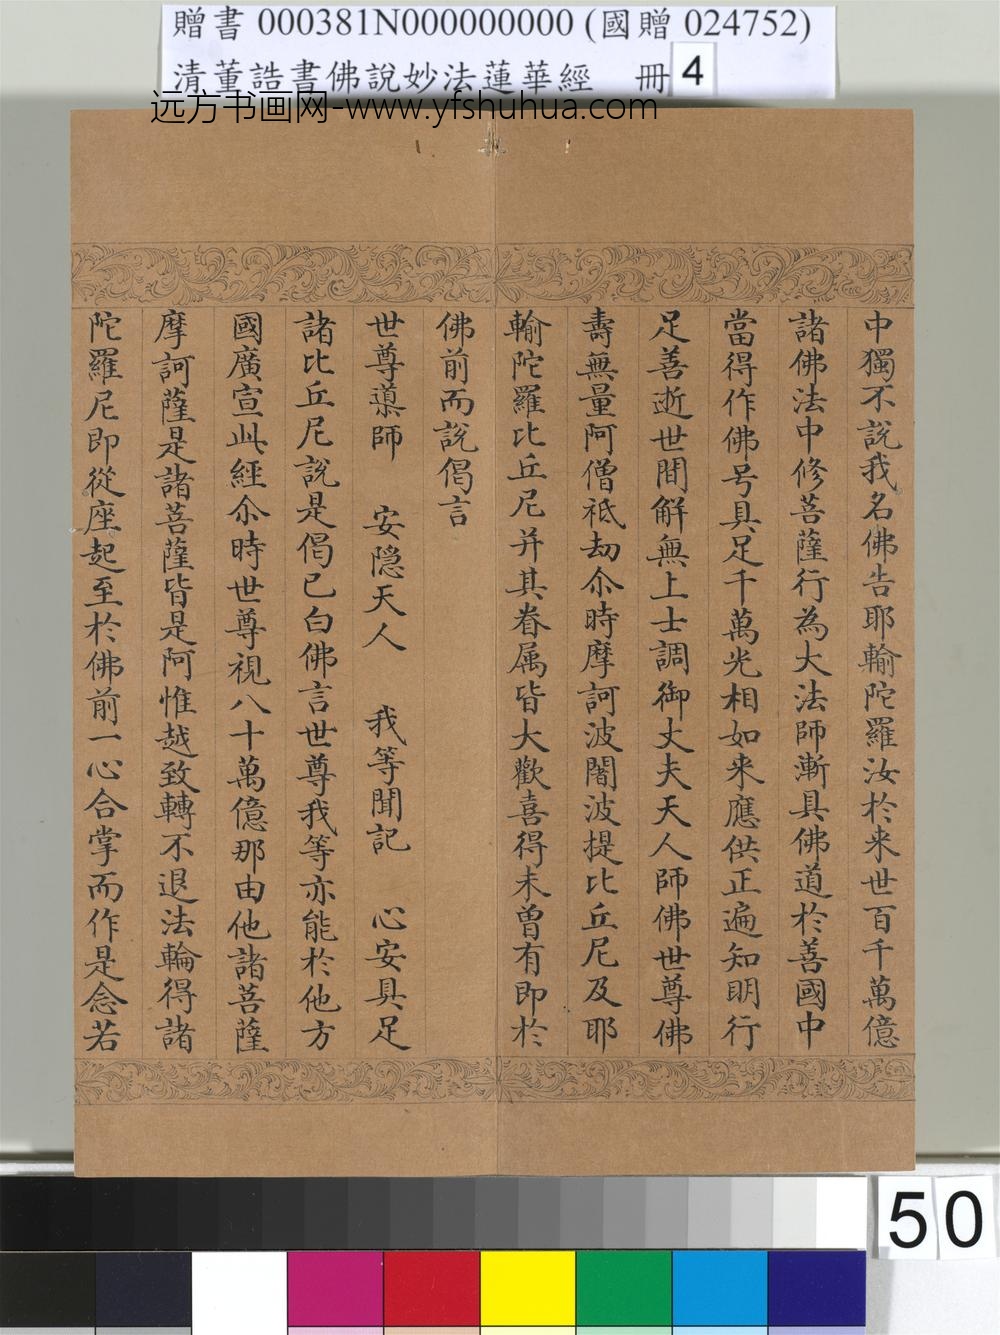 贈書 000381N000000000 (國贈 024752)
清董誥書佛說妙法蓮華經 冊 4
远方书画网-www.yfshuhua.com
中獨不說我名佛告耶輸陀羅汝於来世百千萬億
諸佛法中修菩薩行為大法師漸具佛道於善國中
當得作佛号具足千萬光相如来應供正遍知明行
足善逝世間解無上士調御丈夫天人師佛世尊佛
壽無量阿僧祇劫尒時摩訶波闍波提比丘尼及耶
輸陀羅比丘尼并其眷属皆大歡喜得未曾有即於
佛前而說偈言
世尊導師 安隐天人 我等聞記 心安具足
諸比丘尼說是偈已白佛言世尊我等亦能於他方
國廣宣此經尒時世尊視八十萬億那由他諸菩薩
摩訶薩是諸菩薩皆是阿惟越致轉不退法輪得諸
陀羅尼即從座起至於佛前一心合掌而作是念若
50